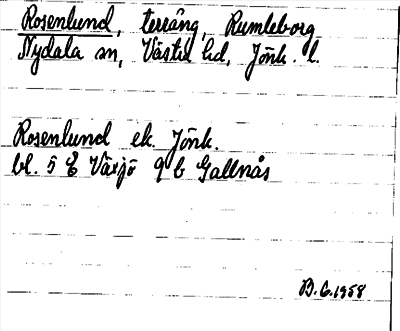 Rosenlund, terräng, Rumleborg
Nydala sn, Västra hd, Jönk. l.
Rosenlund ek. Jönk.
bl. 5 E Växjö 9 b Gallnås
B.G. 1958